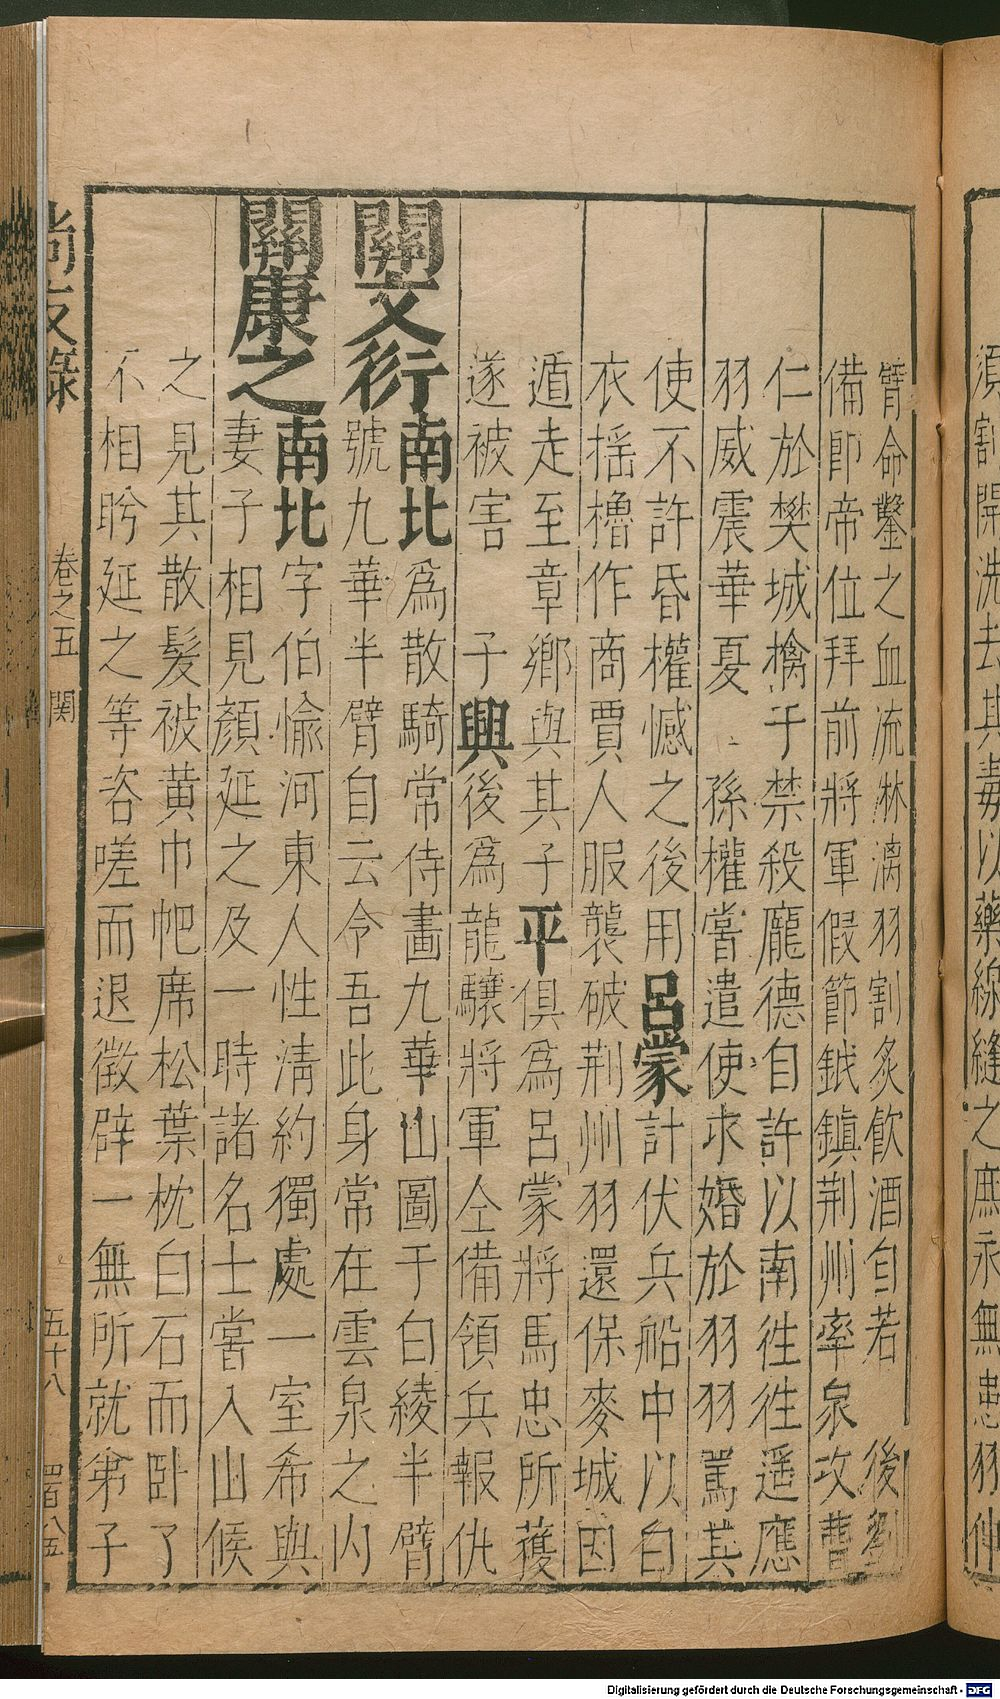 須割開洗去其毒以藥線縫之庶永無患羽伸
臂命鑿之血流淋漓羽割炙飲酒自若 後劉
備即帝位拜前將軍假節鉞鎮荆州率衆攻曹
仁於樊城擒于禁殺龐德自許以南往往遥應
羽威震華夏 孫權嘗遣使求婚於羽羽罵其
使不許昏權憾之後用呂蒙計伏兵船中以白
衣揺櫓作商賈人服襲破荆州羽還保麥城因
遁走至章鄉與其子平俱為呂蒙將馬忠所獲
遂被害 子興後為龍驤將軍仝備領兵報仇
關文衍南北為散騎常侍畫九華山圖于白綾半臂
號九華半臂自云令吾此身常在雲泉之内
關康之南北字伯愉河東人性淸約獨處一室希與
妻子相見顏延之及一時諸名士嘗入山候
之見其散髮被黄巾帊席松葉枕白石而卧了
不相眄延之等咨嗟而退徵辟一無所就弟子
尚友錄 卷之五 関 五十八 四百八五
Digitalisierung gefördert durch die Deutsche Forschungsgemeinschaft - DFG